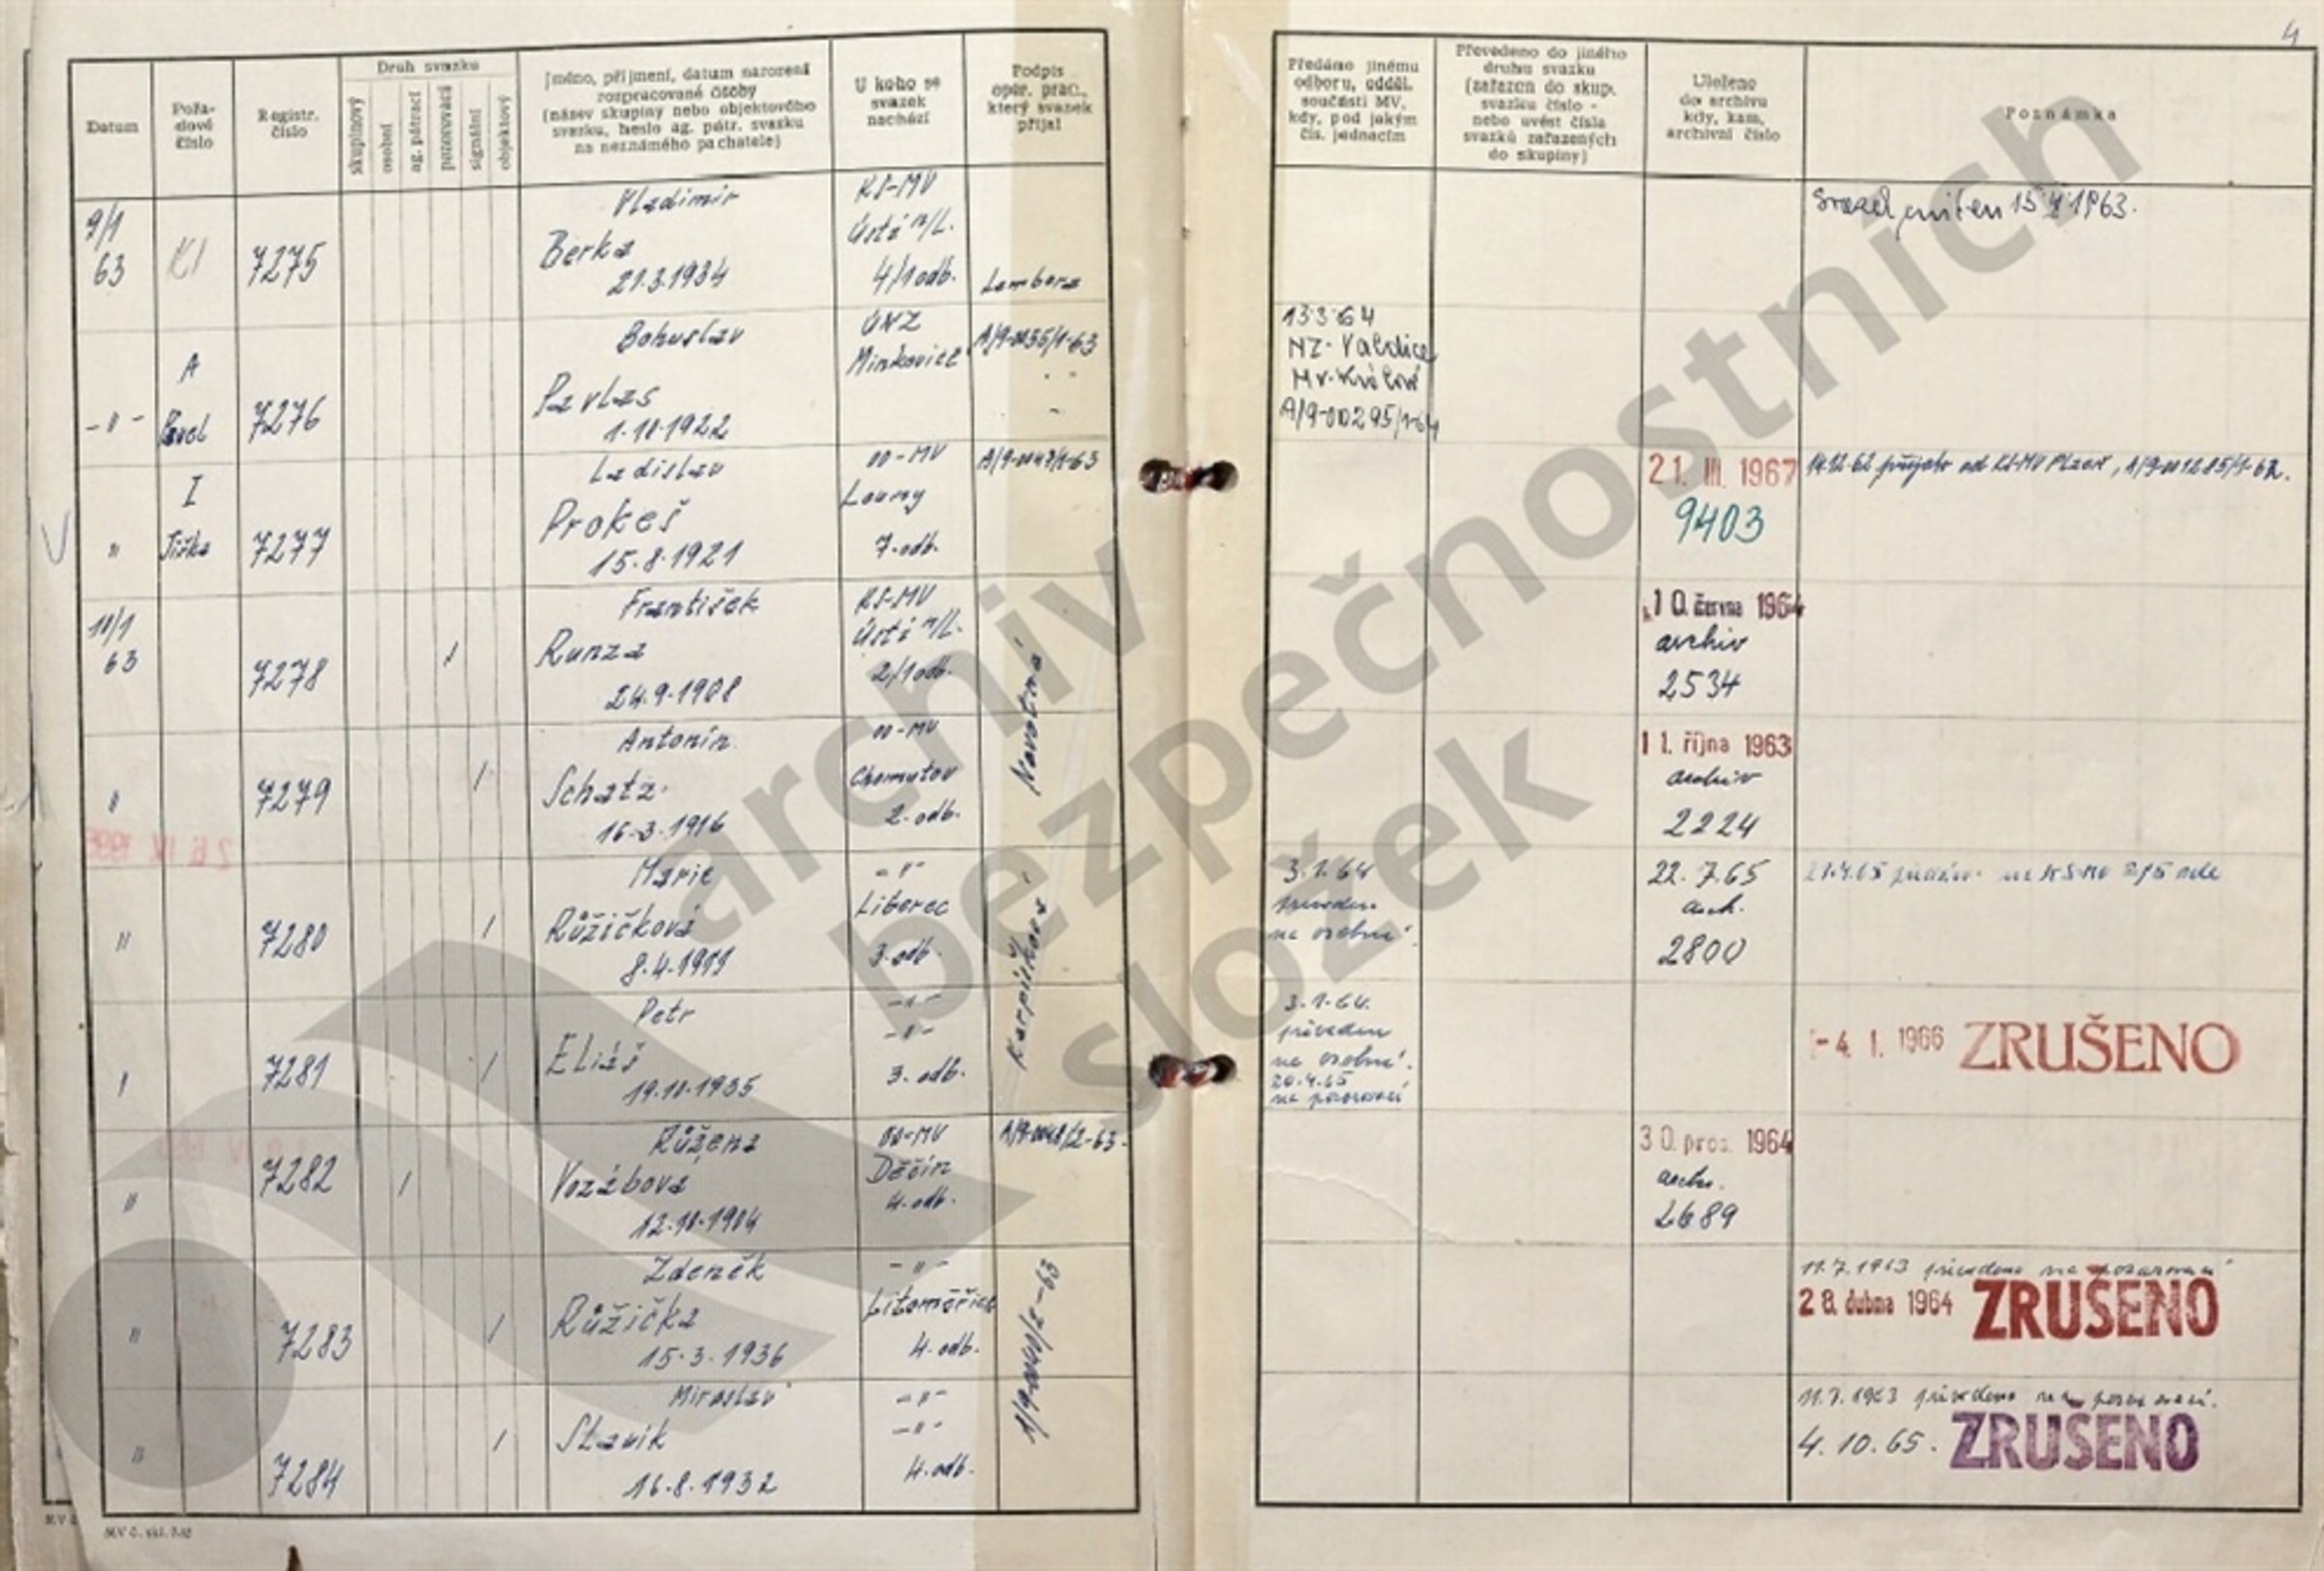 4
Datum
Pořa-
dové
číslo
Registr.
číslo
Druh svazku
skupinový
osobní
ag. pátrací
pozorovací
signální
objektový
Jméno, příjmení, datum narození
rozpracované osoby
(název skupiny nebo objektového
svazku, heslo ag. pátr. svazku
na neznámého pachatele)
U koho se
svazek
nachází
Podpis
oper. prac.,
který svazek
přijal
Předáno jinému
odboru, odděl.
součásti MV,
kdy, pod jakým
čís. jednacím
Převedeno do jiného
druhu svazku
(zařazen do skup.
svazku číslo -
nebo uvést čísla
svazků zařazených
do skupiny)
Uloženo
do archivu
kdy, kam,
archivní číslo
Poznámka
9/1
63
KI
7275
Vladimír
Berka
21.3.1934
KS-MV
Ústí n/L.
4/1 odb.
15 1963.
-"-
A
Pavel
7276
Bohuslav
Pavlas
1.10.1922
ÚNZ
Minkovice
A/9-0035/1-63
13.3.64
NZ-Valdice
A/9-00295/1-64
"
I
Jiřka
7277
Ladislav
Prokeš
15.8.1921
OO-MV
Louny
7.odb.
21. III. 1967
9403
14.12.62 přijato od KS-MV Plzeň,
10/1
63
7278
/
František
Runza
24.9.1908
KS-MV
Ústí n/L.
2/1 odb.
Novotná
10. června 1964
archiv
2534
"
7279
/
Antonín
Schatz
16.3.1916
OO-MV
Chomutov
2.odb.
11. října 1963
archiv
2224
"
7280
/
Marie
Růžičková
8.4.1911
-"-
Liberec
3.odb.
3.1.64
na osobní
22.7.65
arch.
2800
"
7281
/
Petr
Eliáš
19.10.1935
-"-
-"-
3.odb.
3.1.64.
převeden
na osobní.
20.4.65
na pozorovací
-4. 1. 1966 ZRUŠENO
"
7282
/
Růžena
Vozábová
12.10.1904
OO-MV
Děčín
4.odb.
A/9-0048/2-63.
30. pros. 1964
arch.
2689
"
7283
/
Zdeněk
Růžička
15.3.1936
-"-
Litoměřice
4.odb.
11.7.1963 převedeno na pozorovací
28. dubna 1964 ZRUŠENO
"
7284
/
Miroslav
Slavík
16.8.1932
-"-
-"-
4.odb.
11.7.1963 převedeno na pozorovací.
4.10.65. ZRUŠENO
archiv
bezpečnostních
složek